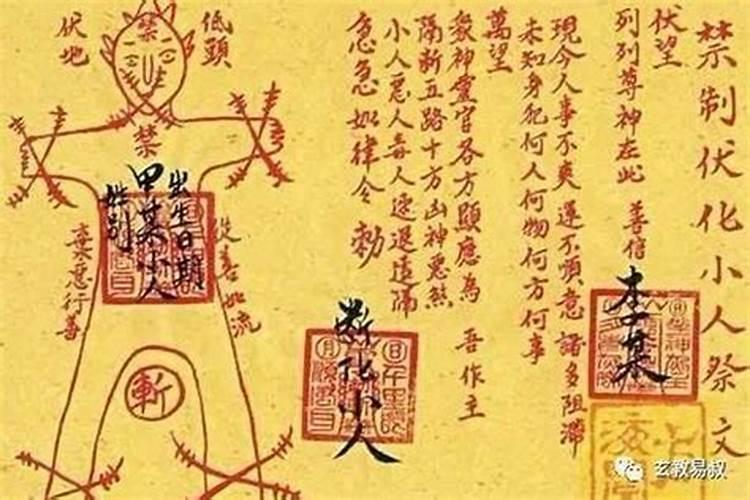 禁制伏化小人祭文
伏望
列列尊神在此 善信 李某
現今人事不爽運不順意諸多阻滯
未知身犯何人何物何方何事
萬望
眾神靈官各方顯應為 吾作主
隔斷五路十方凶神惡煞
小人惡人毒人速退遠隔
急急如律令 勅
断化小人
低頭
禁
伏地
禁
出生日期
甲某小人
姓別
從善如流
棄惡行善
斬
玄教易叔